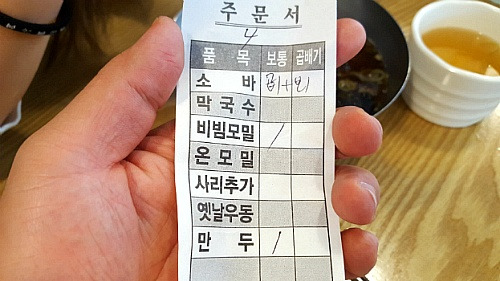 주문서
4
품 목 보통 곱배기
소 바
막국수
비빔모밀 /
온모밀
사리추가
옛날우동
만 두 /